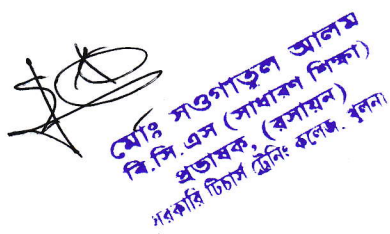 মোঃ সওগাতুল আলম
বি.সি.এস (সাধারণ শিক্ষা)
প্রভাষক, (রসায়ন)
সরকারি টিচার্স ট্রেনিং কলেজ, খুলনা